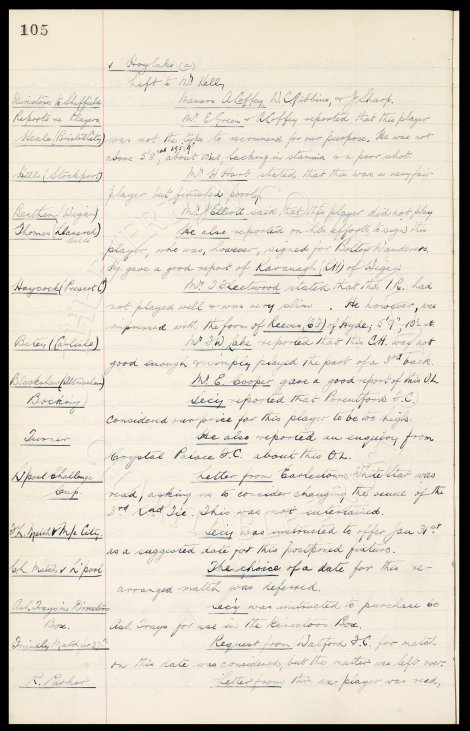 105
v Hoylake (a)
Left to Mr Kelly
Directors to Sheffield Messrs A. Coffey, W. C. Gibbins, & J. Sharp.
Reports re Players Mr E. Green & A. Coffey reported that this player
Neale (Bristol City) was not the type to recommend for our purpose. He was not
above 5'8", about 10st, lacking in stamina & a poor shot.
Wells (Stockport) Mr H. Hart stated that this was a very fair
player but finished poorly.
Beetham (Wigan) Mr said that this player did not play
Thomas (Llanerch) He also reported on his efforts to sign this
player, who was, however, signed for Bolton Wanderers.
He gave a good report of Kavanagh (CH) of
Haycock (Prescot C) Mr J. Fleetwood stated that this I.R. had
not played well & was very slim. He however, was
impressed with the form of Reeves, (CF) of Hyde, 5'9", 10st.
(Carlisle) Mr reported that this C.H. was not
good enough & simply played the part of a 3rd back.
Blackshaw (Altrincham) Mr E. Cooper gave a good report of this O.L.
Bocking) Secy reported that Brentford F.C.
considered our price for this player to be too high.
Turner He also reported an enquiry from
Crystal Palace F.C. about this O.L.
L'pool Challenge Letter from Earlestown White Star was
Cup. read, asking us to consider changing the venue of the
3rd Rd Tie. This was not entertained.
F.L. Match v M/c City. Secy was instructed to offer Jan 31st
as a suggested date for this postponed fixture.
Ch. Match v L'pool The choice of a date for this re-
arranged match was deferred.
Ash Trays in Directors Secy was instructed to purchase 60
Box. Ash Trays for use in the Directors Box.
Friendly Match for 27th Request from Watford F.C. for match
on this date was considered, but the matter was left over.
R. Parker Letter from this ex-player was read,